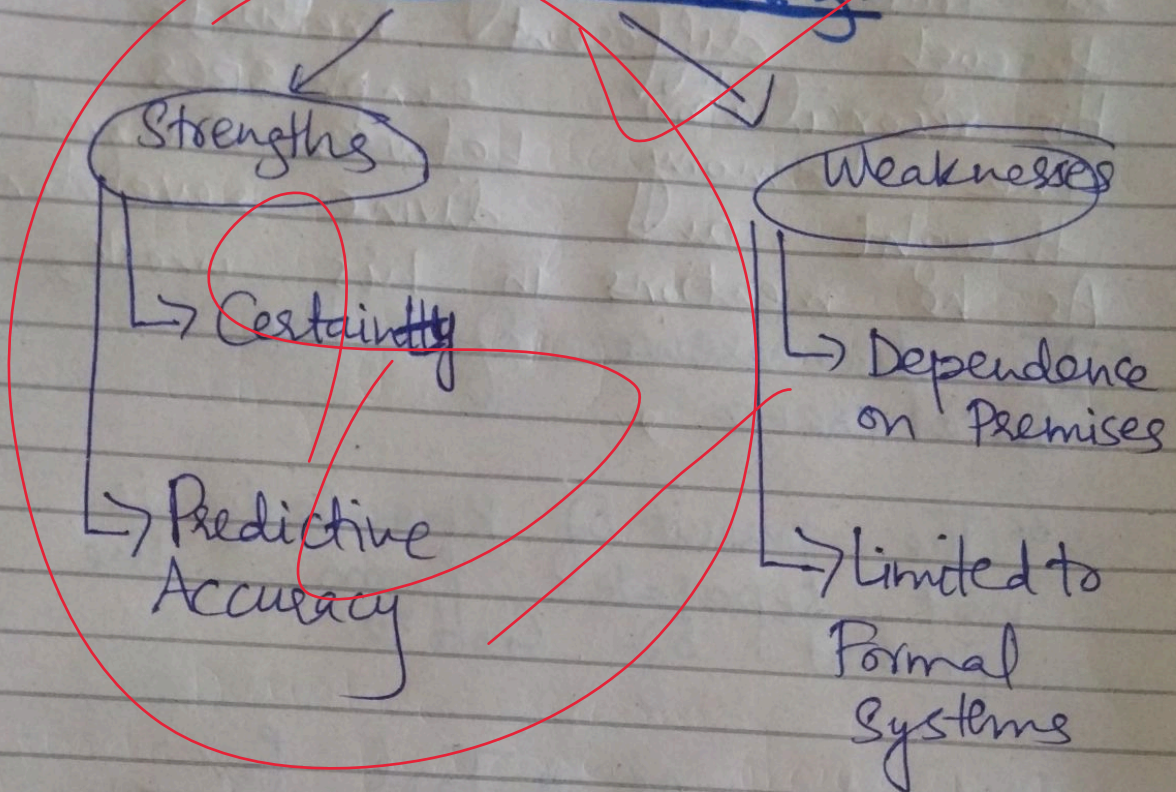 Strengths
Certainty
Predictive
Accuracy
Weaknesses
Dependence
on Premises
Limited to
Formal
Systems